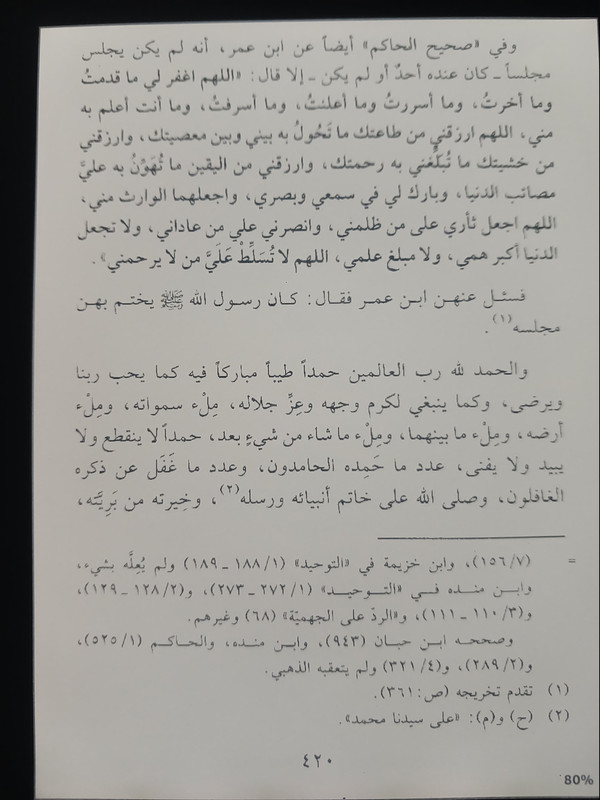 وفي «صحيح الحاكم» أيضاً عن ابن عمر، أنه لم يكن يجلس
مجلساً ـ كان عنده أحدٌ أو لم يكن ـ إلا قال: «اللهم اغفر لي ما قدمتُ
وما أخرتُ، وما أسررتُ وما أعلنتُ، وما أسرفتُ، وما أنت أعلم به
مني، اللهم ارزقني من طاعتك ما تَحُولُ به بيني وبين معصيتك، وارزقني
من خشيتك ما تُبلِّغني به رحمتك، وارزقني من اليقين ما تُهَوِّنُ به عليَّ
مصائب الدنيا، وبارك لي في سمعي وبصري، واجعلهما الوارث مني،
اللهم اجعل ثأري على من ظلمني، وانصرني علي من عاداني، ولا تجعل
الدنيا أكبر همي، ولا مبلغ علمي، اللهم لا تُسَلِّطْ عَلَيَّ من لا يرحمني».
فسئل عنهن ابن عمر فقال: كان رسول الله ﷺ يختم بهن
مجلسه(١).
والحمد لله رب العالمين حمداً طيباً مباركاً فيه كما يحب ربنا
ويرضى، وكما ينبغي لكرم وجهه وعِزِّ جلاله، مِلْء سمواته، ومِلْء
أرضه، ومِلْء ما بينهما، ومِلْء ما شاء من شيءٍ بعد، حمداً لا ينقطع ولا
يبيد ولا يفنى، عدد ما حَمِده الحامدون، وعدد ما غَفَل عن ذكره
الغافلون، وصلى الله على خاتم أنبيائه ورسله(٢)، وخِيرته من بَرِيَّته،
= (١٥٦/٧)، وابن خزيمة في «التوحيد» (١٨٨/١ ـ ١٨٩) ولم يُعِلَّه بشيء،
وابن منده في «التوحيد» (٢٧٢/١ ـ ٢٧٣)، و(١٢٨/٢ ـ ١٢٩)،
و(١١٠/٣ ـ ١١١)، و«الردّ على الجهميّة» (٦٨) وغيرهم.
وصححه ابن حبان (٩٤٣)، وابن منده، والحاكم (٥٢٥/١)،
و(٢٨٩/٢)، و(٣٢١/٤) ولم يتعقبه الذهبي.
(١) تقدم تخريجه (ص: ٣٦١).
(٢) (ح) و(م): «على سيدنا محمد».
٤٢٠
80%